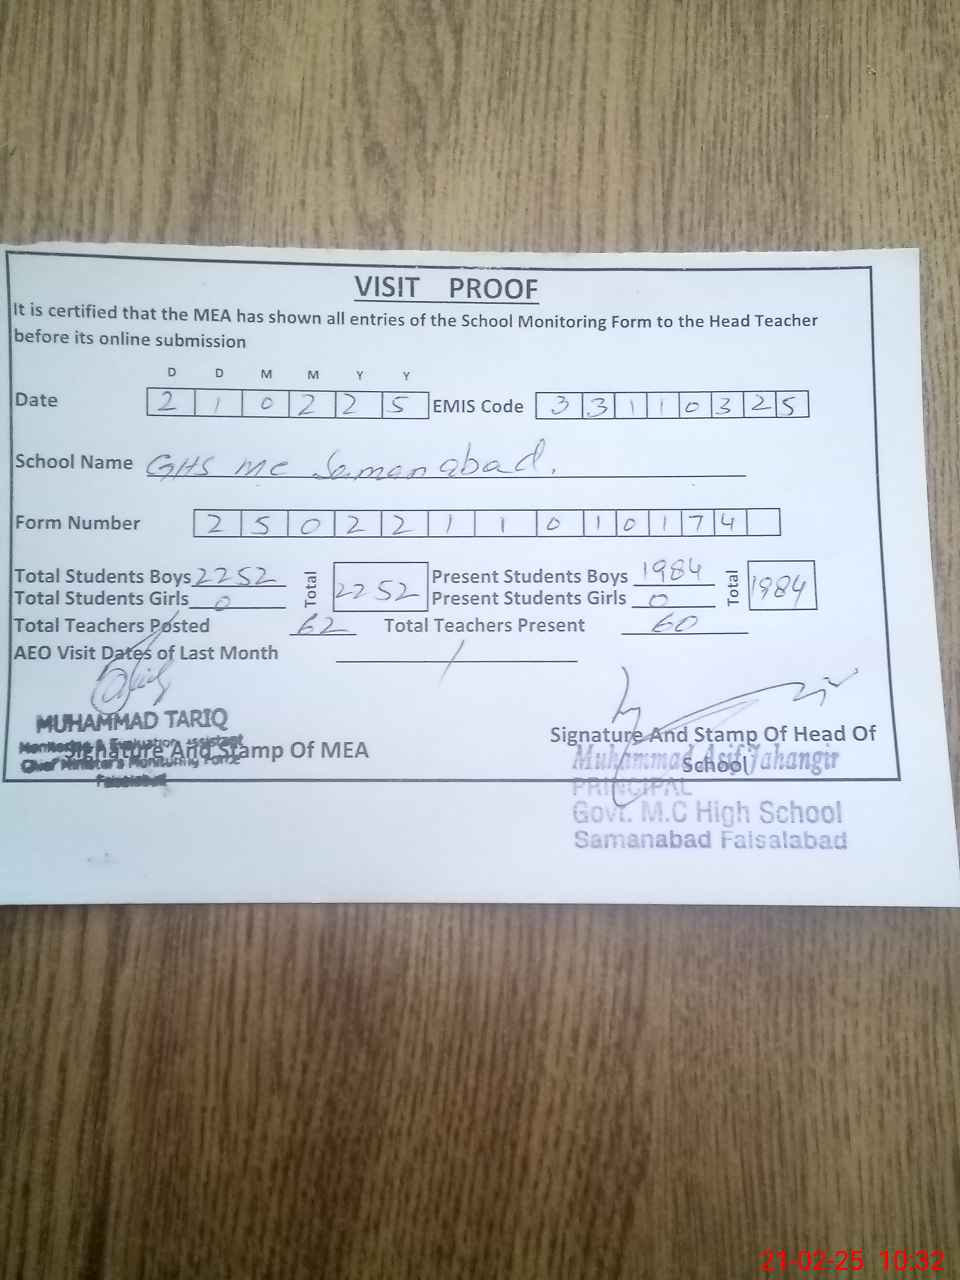 VISIT PROOF
It is certified that the MEA has shown all entries of the School Monitoring Form to the Head Teacher
before its online submission
D D M M Y Y
Date 2 1 0 2 2 5 EMIS Code 3 3 1 1 0 3 2 5
School Name GHS MC Samanabad.
Form Number 2 5 0 2 2 1 1 0 1 0 1 7 4
Total Students Boys 2252 Total 2252 Present Students Boys 1984 Total 1984
Total Students Girls 0 Present Students Girls 0
Total Teachers Posted 62 Total Teachers Present 60
AEO Visit Dates of Last Month /
MUHAMMAD TARIQ
Monitoring & Evaluation Assistant
Signature And Stamp Of MEA
Chief Minister's Monitoring Force
Faisalabad
Signature And Stamp Of Head Of
School
Muhammad Asif Jahangir
PRINCIPAL
Govt. M.C High School
Samanabad Faisalabad
21-02-25 10:32